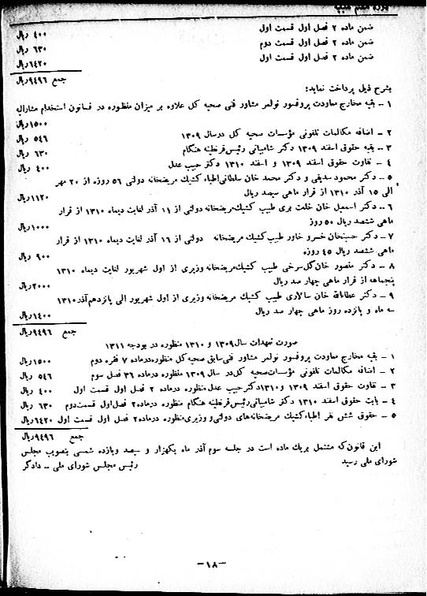 ضمن ماده ۲ فصل اول قسمت اول ۴۰۰ ریال
ضمن ماده ۲ فصل اول قسمت دوم ۶۳۰ ریال
ضمن ماده ۲ فصل اول قسمت اول ۶۴۲۰ ریال
جمع ۹۴۹۶ ریال
بشرح ذیل پرداخت نماید:
۱ - بقیه مخارج معاودت پروفسور نولمر مشاور فنی صحیه کل علاوه بر میزان منظوره در قانون استخدام مشارالیه
۱۵۰۰ ریال
۲ - اضافه مکالمات تلفونی مؤسسات صحیه کل در سال ۱۳۰۹ ۵۴۶ ریال
۳ - بقیه حقوق اسفند ۱۳۰۹ دکتر شامبیاتی رئیس قرنطینه هنگام ۶۳۰ ریال
۴ - تفاوت حقوق اسفند ۱۳۰۹ و اسفند ۱۳۱۰ دکتر حبیب عدل ۴۰۰ ریال
۵ - دکتر محمود صدیقی و دکتر محمد خان سلطانی اطباء کشیک مریضخانه دولتی ۵۶ روز از ۲۰ مهر
الی ۱۵ آذر ۱۳۱۰ از قرار ماهی سیصد ریال ۱۱۲۰ ریال
۶ - دکتر اسمعیل خان خلعت بری طبیب کشیک مریضخانه دولتی از ۱۱ آذر لغایت دیماه ۱۳۱۰ از قرار
ماهی ششصد ریال ۵۰ روز ۱۰۰۰ ریال
۷ - دکتر حسینخان خسرو خاور طبیب کشیک مریضخانه دولتی از ۱۶ آذر لغایت دیماه ۱۳۱۰ از قرار
ماهی ششصد ریال ۴۵ روزه ۹۰۰ ریال
۸ - دکتر منصور خان گل سرخی طبیب کشیک مریضخانه وزیری از اول شهریور لغایت دیماه ۱۳۱۰
پنجماهه از قرار ماهی چهار صد ریال ۲۰۰۰ ریال
۹ - دکتر عطاءالله خان سالاری طبیب کشیک مریضخانه وزیری از اول شهریور الی پانزدهم آذر ۱۳۱۰
سه ماه و پانزده روز ماهی چهار صد ریال ۱۴۰۰ ریال
جمع ۹۴۹۶ ریال
صورت تعهدات سال ۱۳۰۹ و ۱۳۱۰ منظوره در بودجه ۱۳۱۱
۱ - بقیه مخارج معاودت پروفسور نولمر مشاور فنی سابق صحیه کل منظوره در ماده ۷ فقره دوم ۱۵۰۰ ریال
۲ - اضافه مکالمات تلفونی مؤسسات صحیه کل در سال ۱۳۰۹ منظوره در ماده ۳۶ فصل سوم ۵۴۶ ریال
۳ - تفاوت حقوق اسفند ۱۳۰۹ و ۱۳۱۰ دکتر حبیب عدل منظوره در ماده ۲ فصل اول قسمت اول ۴۰۰ ریال
۴ - بابت حقوق اسفند ۱۳۱۰ دکتر شامبیاتی رئیس قرنطینه هنگام منظوره در ماده ۲ فصل اول قسمت دوم ۶۳۰ ریال
۵ - حقوق شش نفر اطباء کشیک مریضخانه های دولتی و وزیری منظوره در ماده ۲ فصل اول قسمت اول ۶۴۲۰ ریال
جمع ۹۴۹۶ ریال
این قانون که مشتمل بریک ماده است در جلسه سوم آذر ماه یکهزار و سیصد و یازده شمسی بتصویب مجلس
شورای ملی رسید رئیس مجلس شورای ملی - دادگر
-۱۸-